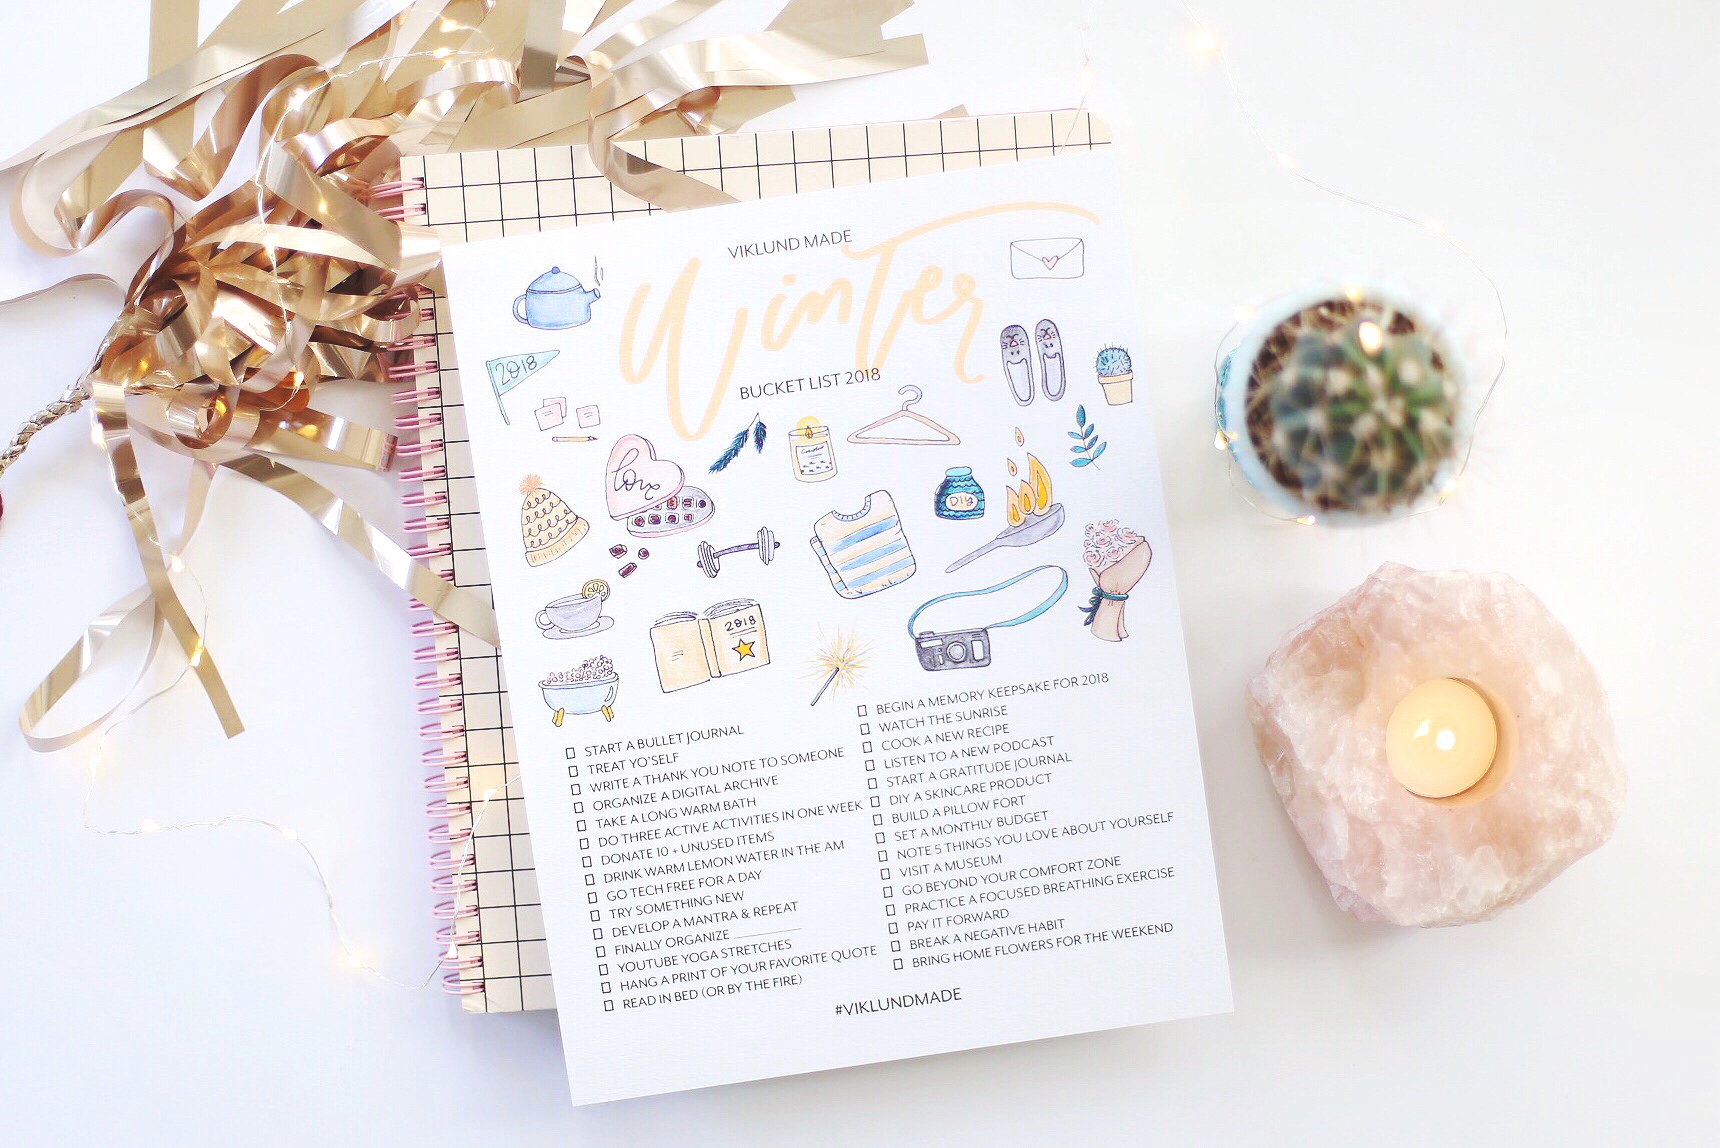 VIKLUND MADE
Winter
BUCKET LIST 2018
2018
love
Candle
DIY
2018
☐ START A BULLET JOURNAL
☐ TREAT YO'SELF
☐ WRITE A THANK YOU NOTE TO SOMEONE
☐ ORGANIZE A DIGITAL ARCHIVE
☐ TAKE A LONG WARM BATH
☐ DO THREE ACTIVE ACTIVITIES IN ONE WEEK
☐ DONATE 10 + UNUSED ITEMS
☐ DRINK WARM LEMON WATER IN THE AM
☐ GO TECH FREE FOR A DAY
☐ TRY SOMETHING NEW
☐ DEVELOP A MANTRA & REPEAT
☐ FINALLY ORGANIZE __________
☐ YOUTUBE YOGA STRETCHES
☐ HANG A PRINT OF YOUR FAVORITE QUOTE
☐ READ IN BED (OR BY THE FIRE)
☐ BEGIN A MEMORY KEEPSAKE FOR 2018
☐ WATCH THE SUNRISE
☐ COOK A NEW RECIPE
☐ LISTEN TO A NEW PODCAST
☐ START A GRATITUDE JOURNAL
☐ DIY A SKINCARE PRODUCT
☐ BUILD A PILLOW FORT
☐ SET A MONTHLY BUDGET
☐ NOTE 5 THINGS YOU LOVE ABOUT YOURSELF
☐ VISIT A MUSEUM
☐ GO BEYOND YOUR COMFORT ZONE
☐ PRACTICE A FOCUSED BREATHING EXERCISE
☐ PAY IT FORWARD
☐ BREAK A NEGATIVE HABIT
☐ BRING HOME FLOWERS FOR THE WEEKEND
#VIKLUNDMADE